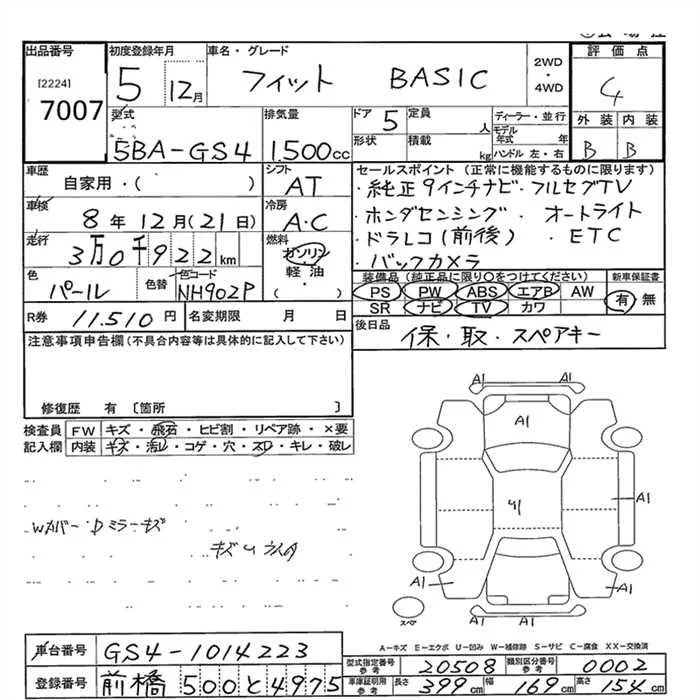 出品番号
[2224]
7007
初度登録年月
5 12月
車名・グレード
フィット BASIC
2WD
・
4WD
評価点
4
外装 内装
B B
型式
5BA-GS4
排気量
1.500cc
ドア 5
定員
人
ディーラー・並行
モデル年式 年
形状
積載
kg
ハンドル 左・右
車歴
自家用・( )
シフト
AT
車検
8年12月(21日)
冷房
A・C
走行
3万0千922km
燃料
ガソリン
・
軽油
・
( )
色
パール
色替
色コード
NH902P
R券 11.510円
名変期限 月 日
セールスポイント(正常に機能するものに限ります)
・純正9インチナビ・フルセグTV
・ホンダセンシング ・オートライト
・ドラレコ(前後) ・ETC
・バックカメラ
装備品(純正品に限り○をつけてください)
PS PW ABS エアB AW
SR ナビ TV カワ
新車保証書
有 無
後日品
保・取・スペアキー
注意事項申告欄(不具合内容等は具体的に記入して下さい)
修復歴 有〔箇所 〕
検査員記入欄
FW キズ・飛石・ヒビ割・リペア跡・×要
内装 キズ・汚レ・コゲ・穴・スレ・キレ・破レ
Wカバー・Dミラーキズ
A1 A1
A1
A1
A1 A1
A1 A1
スペ
A-キズ E-エクボ U-凹み W-補修跡 S-サビ C-腐食 XX-交換済
車台番号 GS4-1014223
登録番号 前橋 500 と 4975
型式指定番号 参考 20508
類別区分番号 参考 0002
車庫証明用 参考 長さ 399cm 幅 169cm 高さ 154cm